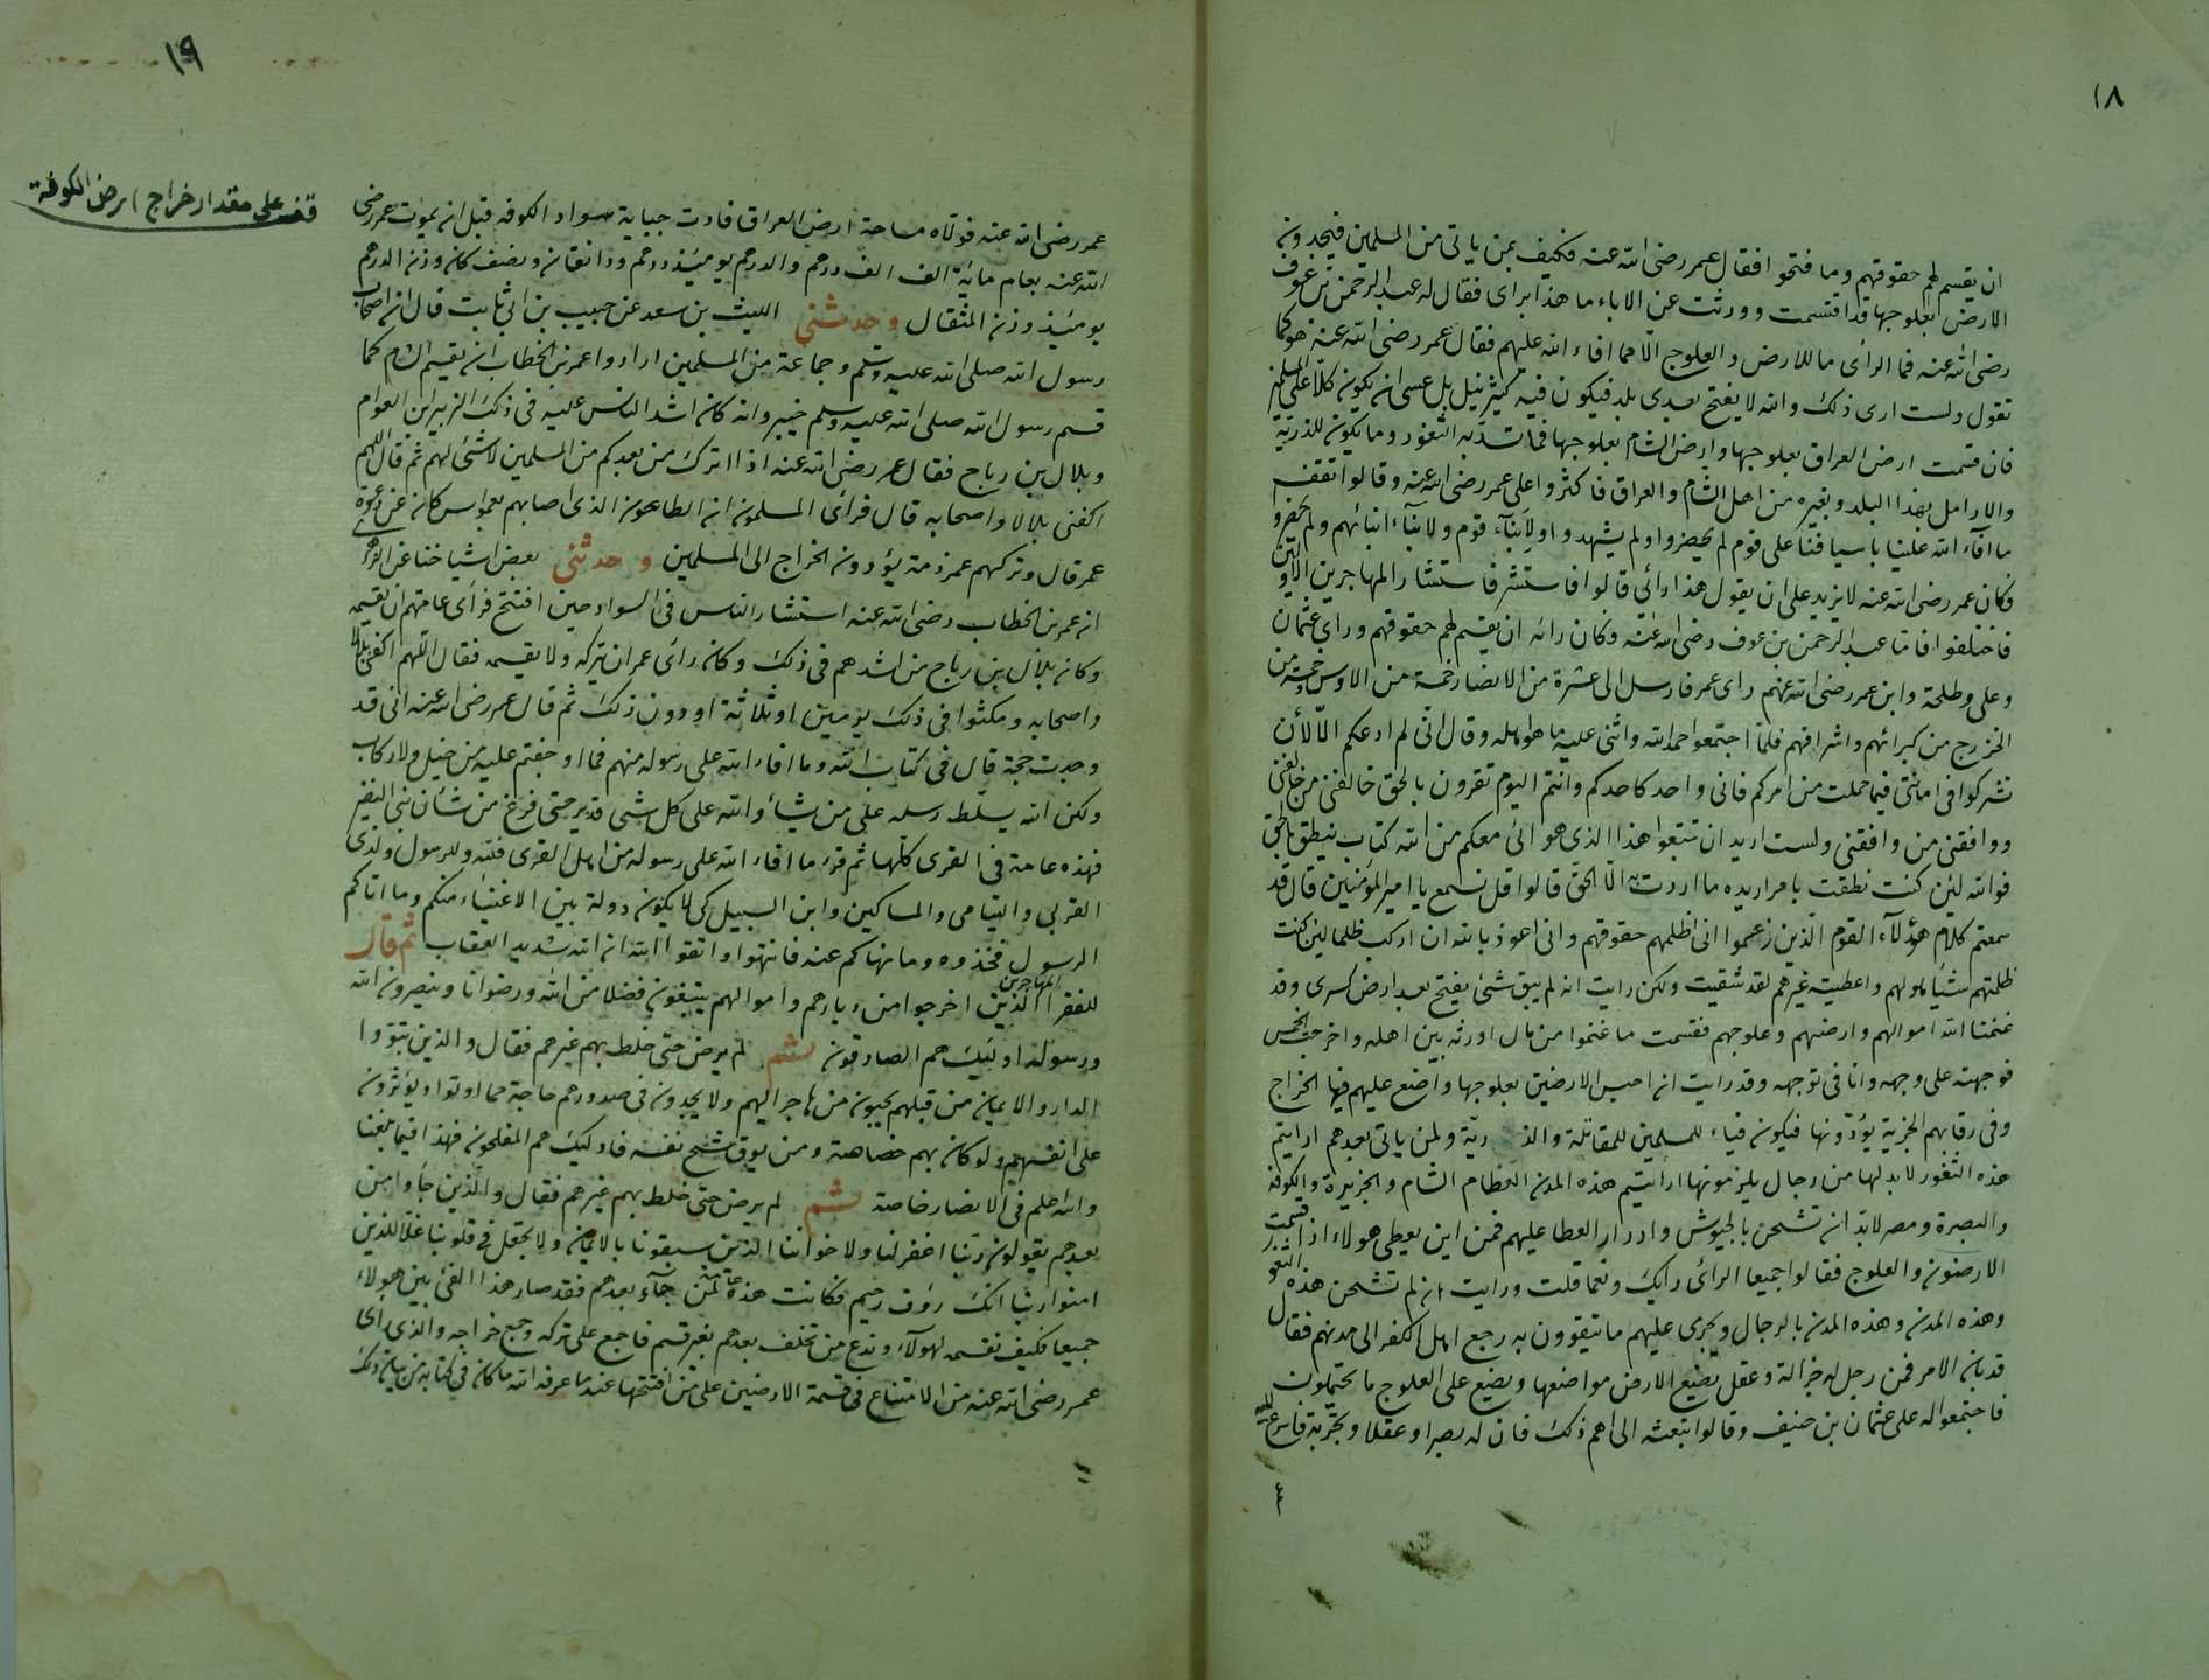 ١٨
ان يقسم لهم حقوقهم وما فتحوا فقال عمر رضى الله عنه فكيف بمن ياتى من المسلمين فيجدون
الارض بعلوجها قد اقتسمت وورثت عن الاباء ما هذا براى فقال له عبد الرحمن بن عوف
رضى الله عنه فما الراى ما للارض والعلوج الا مما افاء الله عليهم فقال عمر رضى الله عنه هو كما
تقول ولست ارى ذلك والله لا يفتح بعدى بلد فيكون فيه كثير نيل بل عسى ان يكون كلا على المسلمين
فان قسمت ارض العراق بعلوجها وارض الشام بعلوجها فما تسد به الثغور وما يكون للذرية
والارامل بهذا البلد وبغيره من اهل الشام والعراق فاكثروا على عمر رضى الله عنه وقالوا تقف
ما افاء الله علينا باسيافنا على قوم لم يحضروا ولم يشهدوا ولابناء قوم ولابناء ابنائهم ولم يحضروا
فكان عمر رضى الله عنه لا يزيد على ان يقول هذا رائى قالوا فاستشر فاستشار المهاجرين الاولين
فاختلفوا فاما عبد الرحمن بن عوف رضى الله عنه وكان رائه ان يقسم لهم حقوقهم وراى عثمان
وعلى وطلحة وابن عمر رضى الله عنهم راى عمر فارسل الى عشرة من الانصار خمسة من الاوس وخمسة من
الخزرج من كبرائهم واشرافهم فلما اجتمعوا حمد الله واثنى عليه ما هو اهله وقال انى لم ادعكم الا لأن
تشركوا فى امانتى فيما حملت من امركم فانى واحد كاحدكم وانتم اليوم تقرون بالحق خالفنى من خالفنى
ووافقنى من وافقنى ولست اريد ان تتبعوا هذا الذى هوائى معكم من الله كتاب ينطق بالحق
فوالله لئن كنت نطقت بامر اريده ما اردت به الا الحق قالوا قل نسمع يا امير المؤمنين قال قد
سمعتم كلام هؤلاء القوم الذين زعموا انى اظلمهم حقوقهم وانى اعوذ بالله ان اركب ظلما لئن كنت
ظلمتهم شيئا هو لهم واعطيته غيرهم لقد شقيت ولكن رايت انه لم يبق شئ يفتح بعد ارض كسرى وقد
غنمنا الله اموالهم وارضهم وعلوجهم فقسمت ما غنموا من مال اورثه بين اهله واخرجت الخمس
فوجهته على وجهه وانا فى توجهه وقد رايت ان احبس الارضين بعلوجها واضع عليهم فيها الخراج
وفى رقابهم الجزية يؤدونها فيكون فياء للمسلمين للمقاتلة والذرية ولمن ياتى بعدهم ارايتم
هذه الثغور لابد لها من رجال يلزمونها ارايتم هذه المدن العظام الشام والجزيرة والكوفة
والبصرة ومصر لابد ان تشحن بالجيوش وادرار العطا عليهم فمن اين يعطى هولاء اذا قسمت
الارضون والعلوج فقالوا جميعا الرأى رايك ونعما قلت ورايت ان لم تشحن هذه الثغور
وهذه المدن وهذه المدن بالرجال ويجرى عليهم ما يتقوون به رجع اهل الكفر الى مدنهم فقال
قد بان الامر فمن رجل له جزالة وعقل يضع الارض مواضعها ويضع على العلوج ما يحتملون
فاجتمعوا له على عثمان بن حنيف وقالوا تبعثه الى اهم ذلك فان له بصرا وعقلا وتجربة فاسرع اليه
١٩
قف على مقدار خراج ارض الكوفة
عمر رضى الله عنه فولاه مساحة ارض العراق فادت جباية سواد الكوفه قبل ان يموت عمر رضى
الله عنه بعام مائة الف الف درهم والدرهم يومئذ درهم ودانقان ونصف كان وزن الدرهم
يومئذ وزن المثقال وحدثنى الليث بن سعد عن حبيب بن ابى ثابت قال ان اصحاب
رسول الله صلى الله عليه وسلم وجماعة من المسلمين ارادوا عمر بن الخطاب ان يقسم الشام كما
قسم رسول الله صلى الله عليه وسلم خيبر وانه كان اشد الناس عليه فى ذلك الزبير ابن العوام
وبلال بن رباح فقال عمر رضى الله عنه اذا اترك من بعدكم من المسلمين لا شئ لهم ثم قال اللهم
اكفنى بلالا واصحابه قال فرأى المسلمون ان الطاعون الذى اصابهم بعمواس كان عن دعوة
عمر قال وتركهم عمر ذمة يؤدون الخراج الى المسلمين وحدثنى بعض اشياخنا عن الزهرى
ان عمر بن الخطاب رضى الله عنه استشار الناس فى السواد حين افتتح فرأى عامتهم ان يقسمه
وكان بلال بن رباح من اشدهم فى ذلك وكان رأى عمر ان يتركه ولا يقسمه فقال اللهم اكفنى بلالا
واصحابه ومكثوا فى ذلك يومين او ثلاثة او دون ذلك ثم قال عمر رضى الله عنه انى قد
وجدت حجة قال فى كتاب الله وما افاء الله على رسوله منهم فما اوجفتم عليه من خيل ولا ركاب
ولكن الله يسلط رسله على من يشاء والله على كل شى قدير حتى فرغ من شأن بنى النضير
فهذه عامة فى القرى كلها ثم قرء ما افاء الله على رسوله من اهل القرى فلله وللرسول ولذى
القربى واليتامى والمساكين وابن السبيل كى لا يكون دولة بين الاغنياء منكم وما اتاكم
الرسول فخذوه وما نهاكم عنه فانتهوا واتقوا الله ان الله شديد العقاب ثم قال
للفقراء المهاجرين الذين اخرجوا من ديارهم واموالهم يبتغون فضلا من الله ورضوانا وينصرون الله
ورسوله اولئك هم الصادقون ثم لم يرض حتى خلط بهم غيرهم فقال والذين تبوؤا
الدار والايمان من قبلهم يحبون من هاجر اليهم ولا يجدون فى صدورهم حاجة مما اوتوا ويؤثرون
على انفسهم ولو كان بهم خصاصة ومن يوق شح نفسه فاولئك هم المفلحون فهذا فيما بلغنا
والله اعلم فى الانصار خاصة ثم لم يرض حتى خلط بهم غيرهم فقال والذين جاؤا من
بعدهم يقولون ربنا اغفر لنا ولاخواننا الذين سبقونا بالايمان ولا تجعل فى قلوبنا غلا للذين
امنوا ربنا انك رؤف رحيم فكانت هذه عامة لمن جاء بعدهم فقد صار هذا الفئ بين هولاء
جميعا فكيف نقسمه لهولاء وندع من تخلف بعدهم بغير قسم فاجمع على تركه وجمع خراجه والذى راى
عمر رضى الله عنه من الامتناع فى قسمة الارضين على من افتتحها عندما عرفه الله ما كان فى كتابه من بيان ذلك